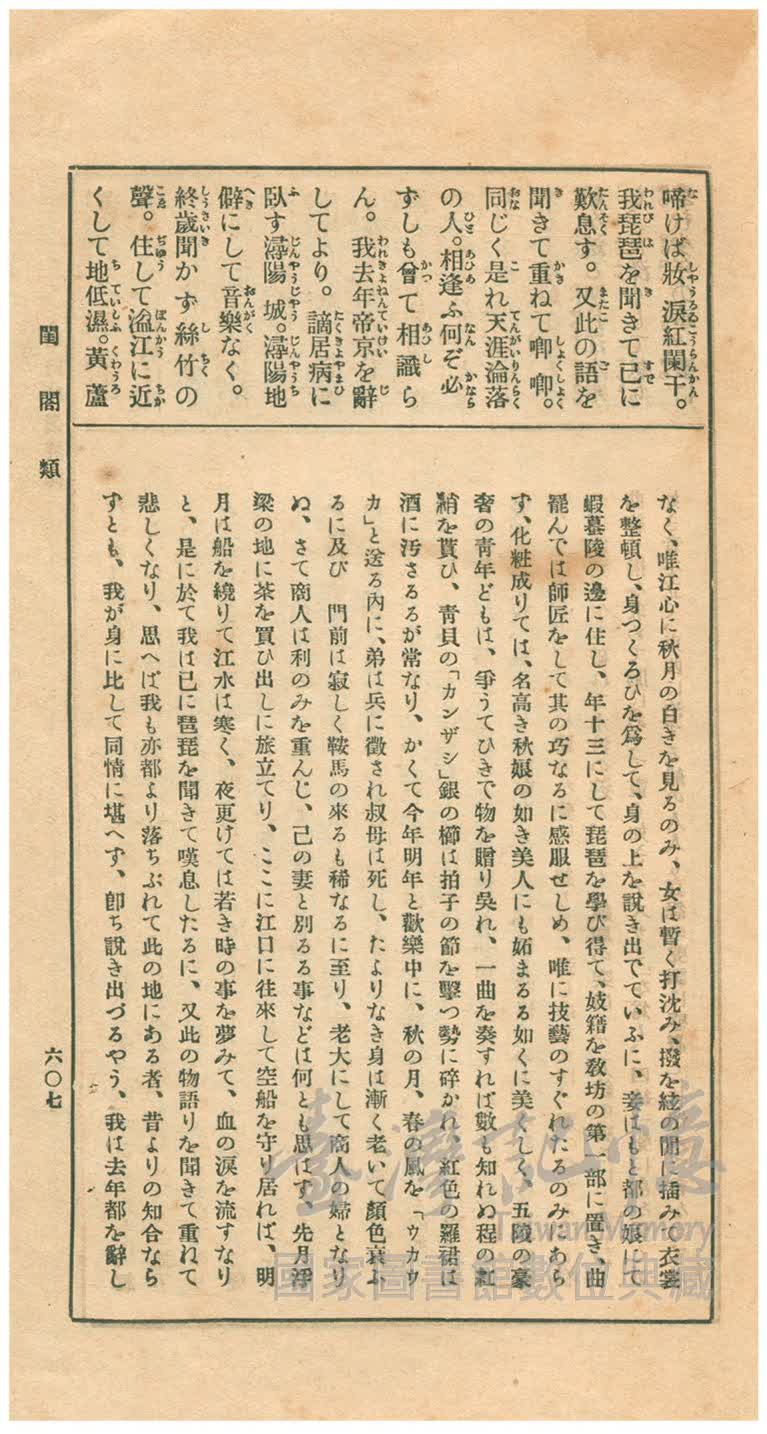 啼けば妝涙紅闌干。
我琵琶を聞きて已に
歎息す。又此の語を
聞きて重ねて喞喞。
同じく是れ天涯淪落
の人。相逢ふ何ぞ必
ずしも曾て相識ら
ん。我去年帝京を辭
してより。謫居病に
臥す潯陽城。潯陽地
僻にして音樂なく。
終歲聞かず絲竹の
聲。住して湓江に近
くして地低濕。黃蘆
なく、唯江心に秋月の白きを見るのみ、女は暫く打沈み、撥を絃の間に插みて衣裳
を整頓し、身つくろひを爲して、身の上を說き出でていふに、妾はもと都の娘にて
蝦蟇陵の邊に住し、年十三にして琵琶を學び得て、妓籍を敎坊の第一部に置き、曲
罷んでは師匠をして其の巧なるに感服せしめ、唯に技藝のすぐれたるのみにあら
ず、化粧成りては、名高き秋娘の如き美人にも妬まるる如くに美くしく、五陵の豪
奢の靑年どもは、爭うてひきで物を贈り吳れ、一曲を奏すれば數も知れぬ程の紅
綃を貰ひ、靑貝の「カンザシ」銀の櫛は拍子の節を擊つ勢に碎かれ、紅色の羅裙は
酒に汚さるるが常なり、かくて今年明年と歡樂中に、秋の月、春の風を「ウカウ
カ」と送る內に、弟は兵に徵され叔母は死し、たよりなき身は漸く老いて顏色衰ふ
るに及び 門前は寂しく鞍馬の來るも稀なるに至り、老大にして商人の婦となり
ぬ、さて商人は利のみを重んじ、己の妻と別るる事などは何とも思はず、先月浮
梁の地に茶を買ひ出しに旅立てり、ここに江口に往來して空船を守り居れば、明
月は船を繞りて江水は寒く、夜更けては若き時の事を夢みて、血の涙を流すなり
と、是に於て我は已に琵琶を聞きて嘆息したるに、又此の物語りを聞きて重ねて
悲しくなり、思へば我も亦都より落ちぶれて此の地にある者、昔よりの知合なら
ずとも、我が身に比して同情に堪へず、卽ち說き出づるやう、我は去年都を辭し
閨閤類
六〇七
臺灣記憶
Taiwan Memory
國家圖書館數位典藏